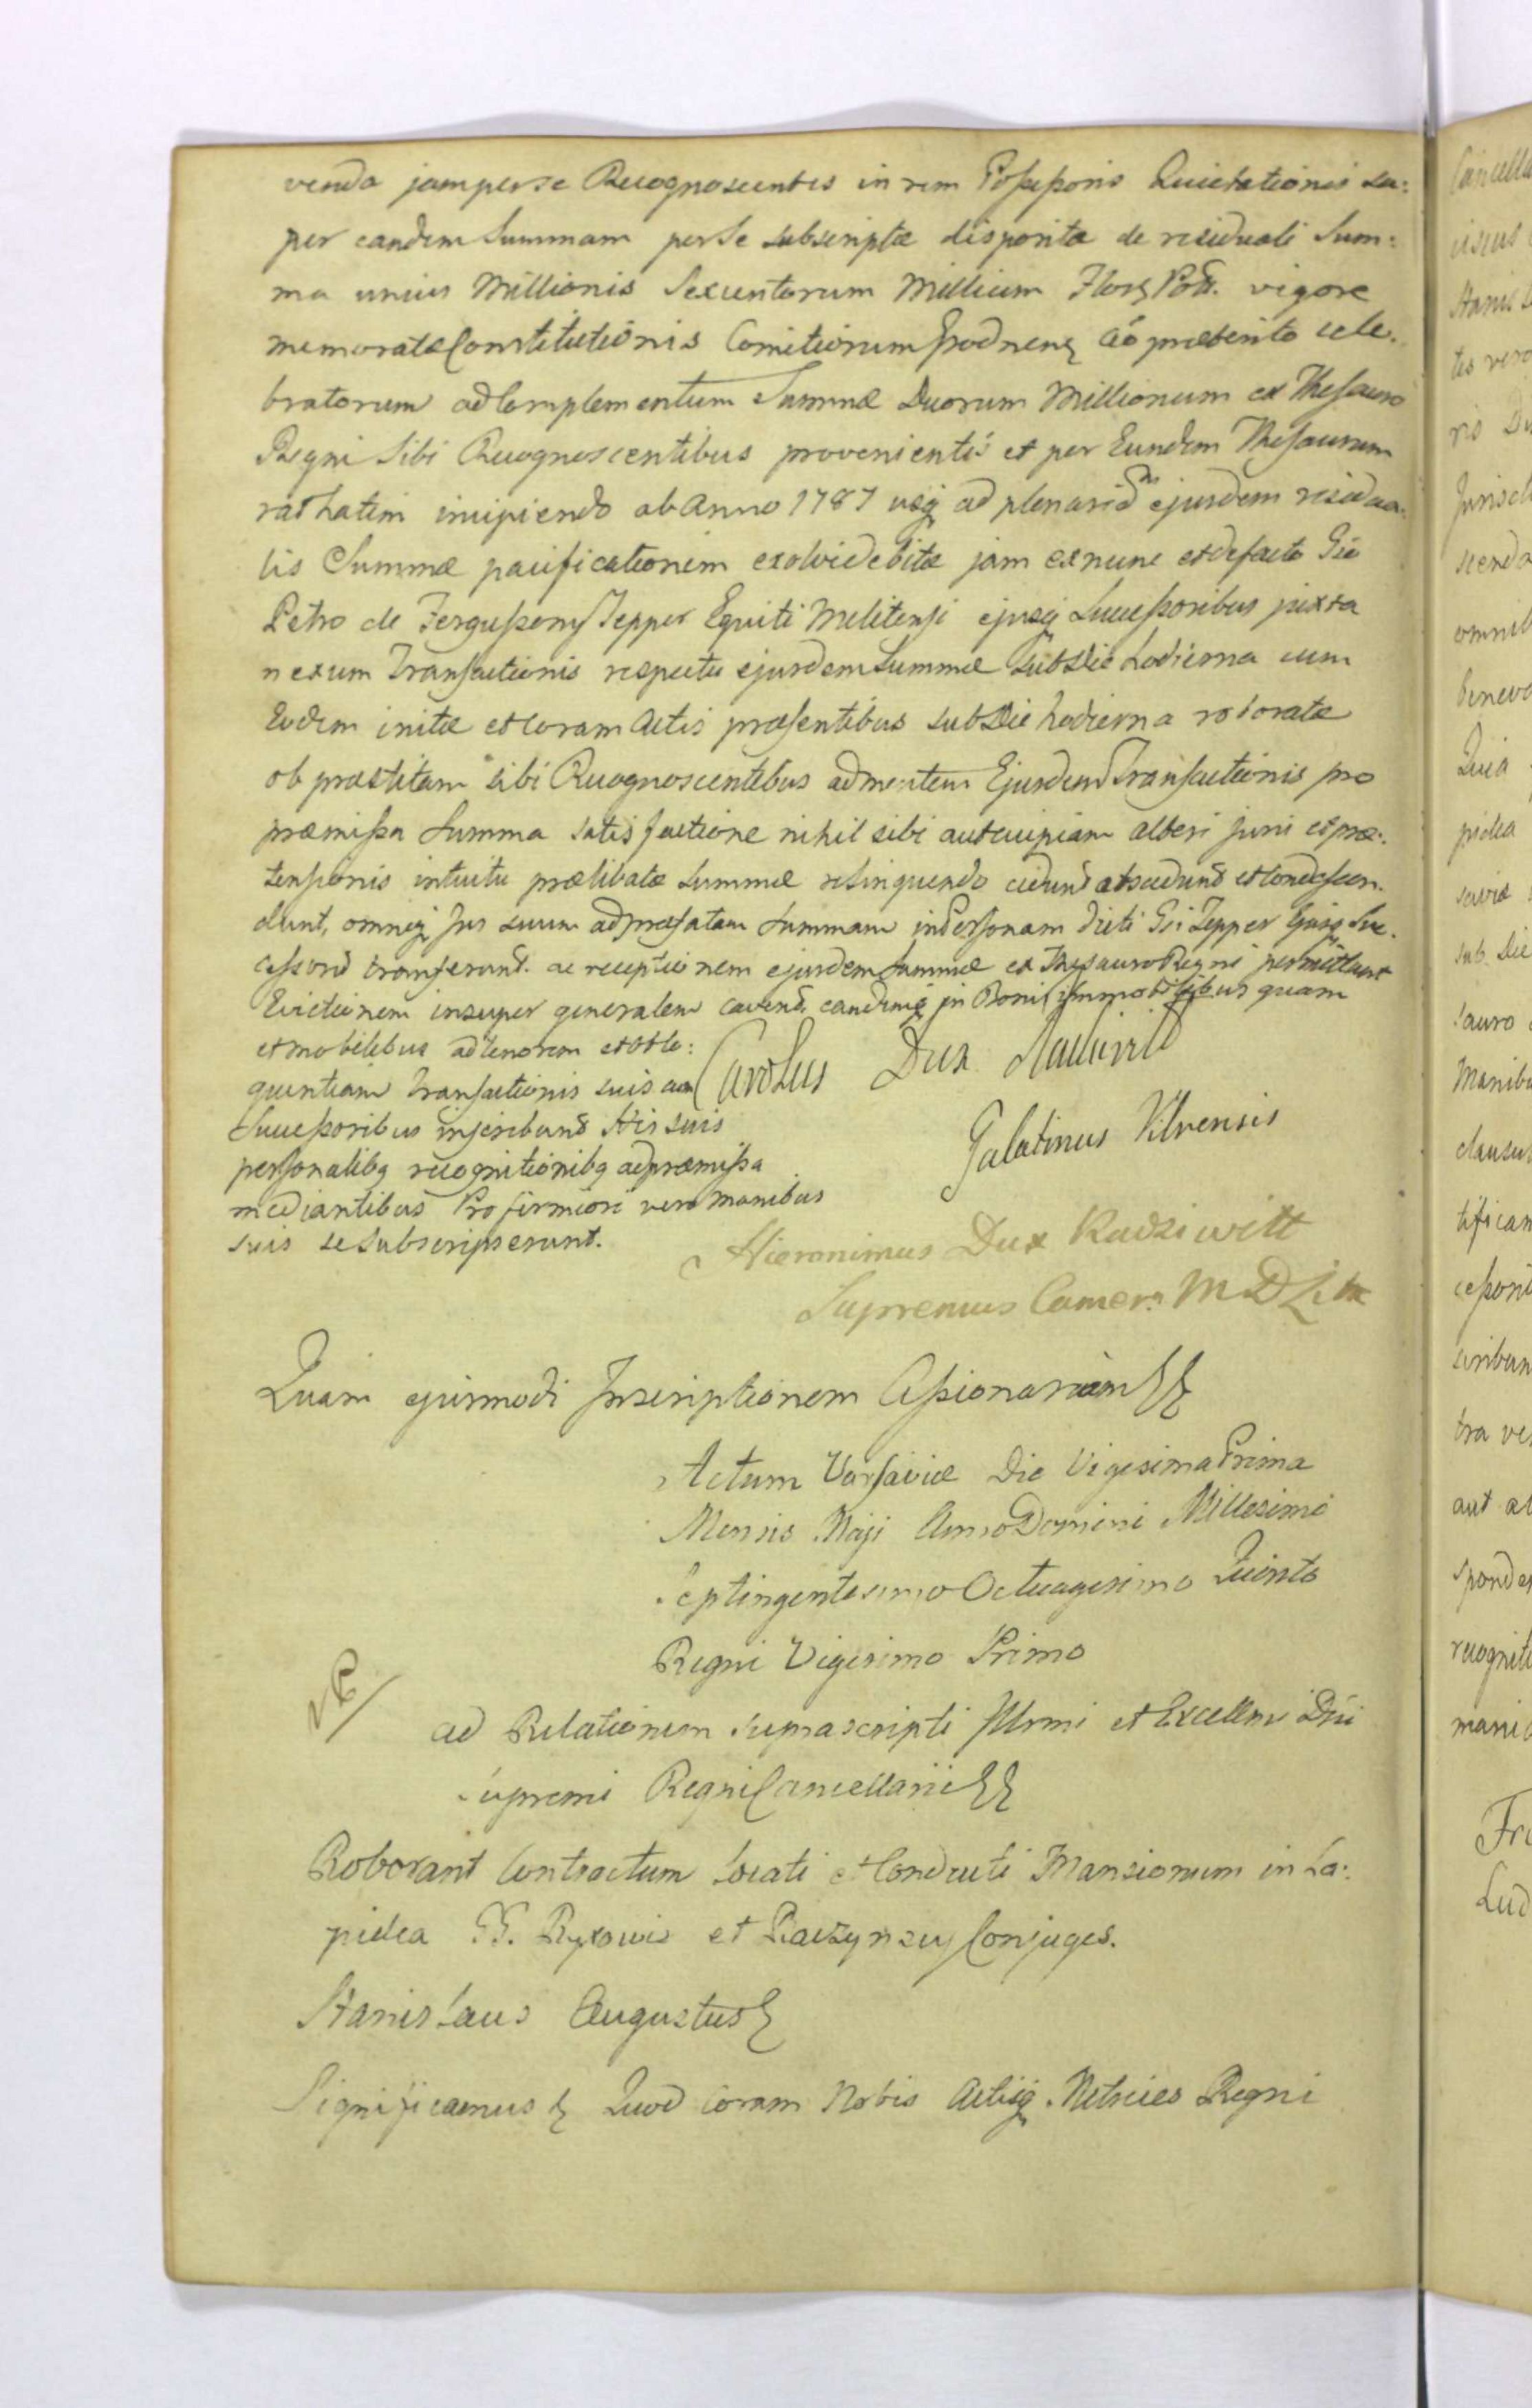 venda jam per se Recognoscentes in rem Possessoris Quietationis su:
per eandem Summam per se subscriptæ disposita de residuali Sum:
ma unius Millionis Sexcentorum Millium Flor Poll. vigore
memoratæ Constitutionis Comitiorum Grodnens Ao præterito cele.
bratorum ad Complementum Summæ Duorum Millionum ex Thesauro
Regni sibi Recognoscentibus provenientis et per Eundem Thesaurum
rathatim incipiendo ab Anno 1787 usq ad plenariam ejusdem residua:
lis Summæ pacificationem exolvi debitæ jam ex nunc et de facto Gso
Petro de Fergussony Tepper Equiti Melitensi ejusq Successoribus juxta
nexum Transactionis respectu ejusdem Summæ sub Die hodierna cum
Eodem initæ et coram Actis præsentibus sub Die hodierna roboratæ
ob præstitam sibi Recognoscentibus ad mentem Ejusdem Transactionis pro
præmissa Summa satisfactione nihil sibi aut cuipiam alteri juri et præ:
tensionis intuitu prælibatæ Summæ relinquendo cedunt abscedunt et condescen.
dunt, omneq Jus suum ad præfatam Summam in Personam dicti Gsi Tepper Ejusq Suc.
cessorum transferunt. ac receptionem ejusdem Summæ ex Thesauro Regni permittunt
Evictionem insuper generalem cavend eandemq in Bonis immobilibus quam
et mobilibus ad tenorem et
quentiam Transactionis suis cum
Successoribus inscribunt His suis
personalibq recognitionibq ad præmissa
mediantibus Pro firmiori vero manibus
suis se subscripserunt.
Carolus Dux Radziwiłł
Palatinus Vilnensis
Hieronimus Dux Radziwiłł
Supremus Camer. M D Litt
Quam ejusmodi Inscriptionem Cessionariam
Actum Varsaviæ Die Vigesima Prima
Mensis Maji Anno Domini Millesimo
Septingentesimo Octuagesimo Quinto
Regni Vigesimo Primo
ad Relationem suprascripti Illrmi et Excellmi Dni
Supremi Regni Cancellarii
Roborant Contractum Locati et Conducti Mansionum in La:
pidea GG. Ryxowie et Raczynscy Conjuges.
Stanislaus Augustus
Significamus Quod Coram Nobis Actisq Metrices Regni